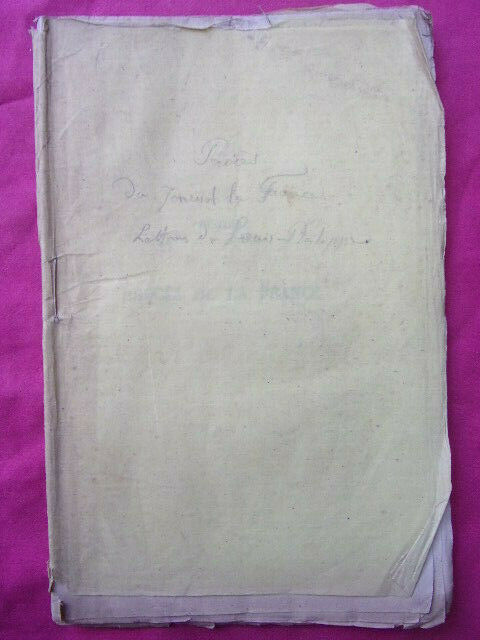 Procès
du Journal la France
Lettres de Louis-Philippe
PROCÈS DE LA FRANCE